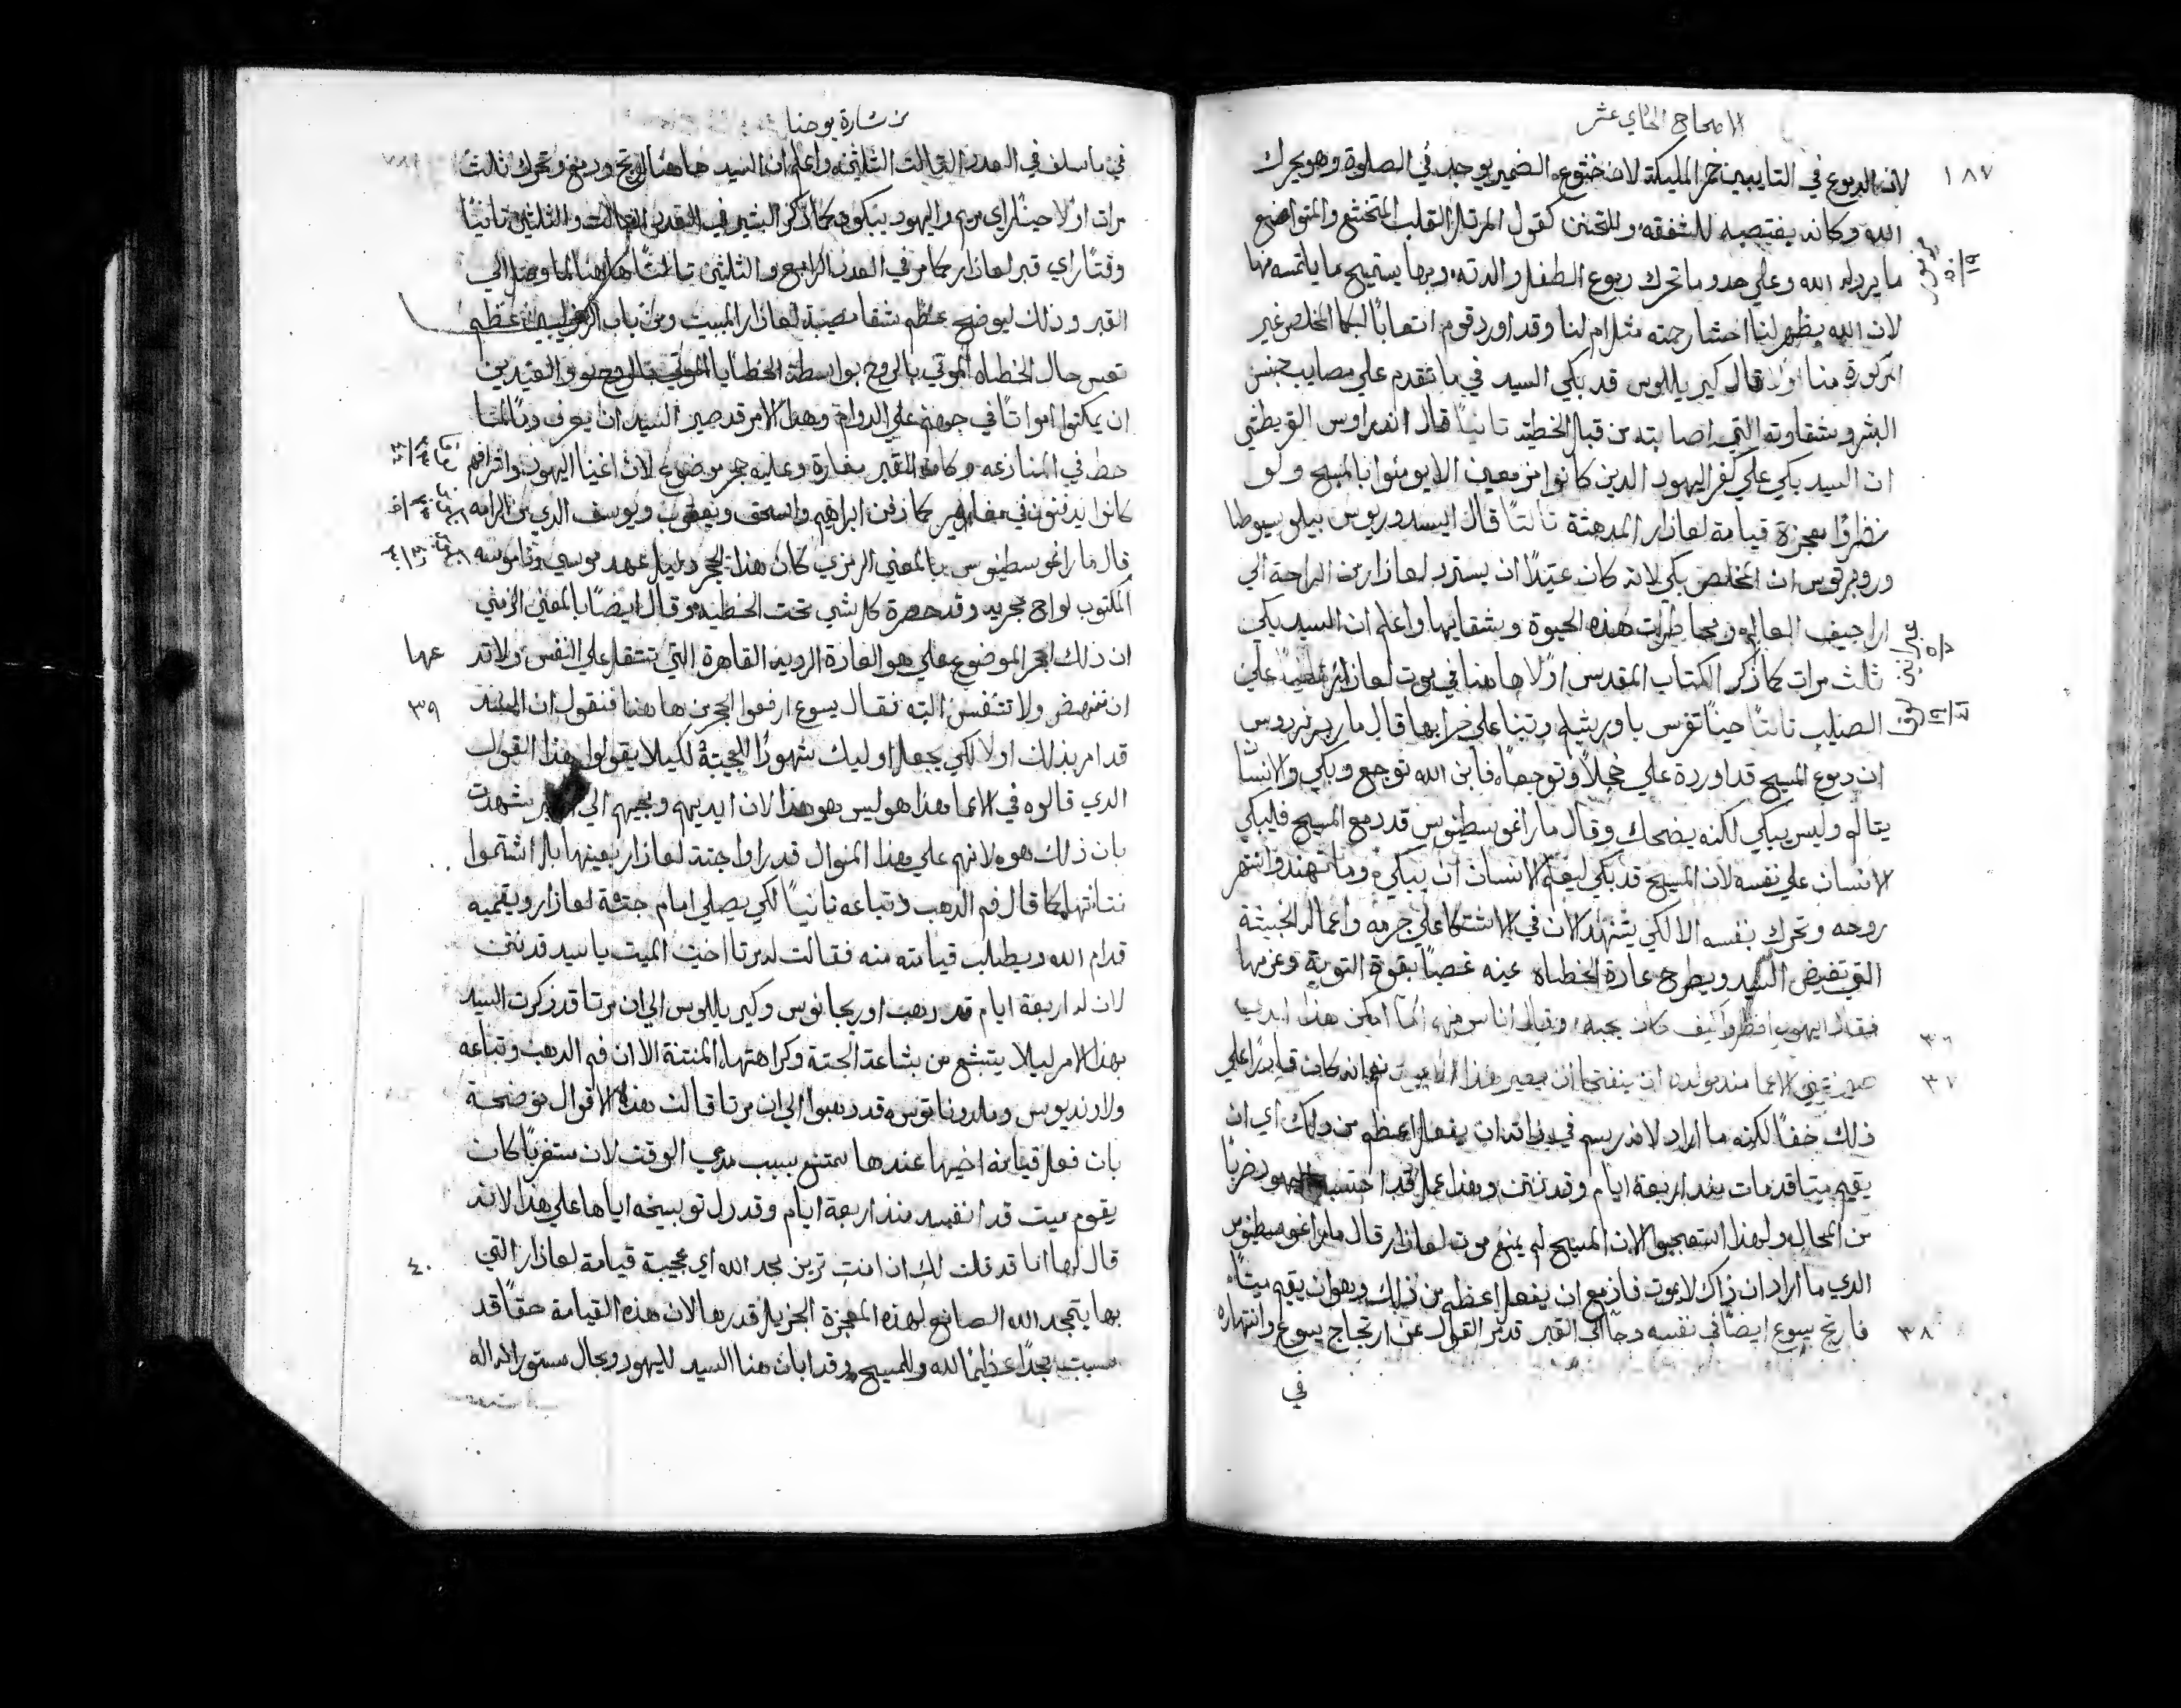 الاصحاح الحادي عشر
١٨٧
لان الدموع في التايبين خمر المليكة لان خشوع الضمير يوجد في الصلوة وهو يحرك
الله وكانه يغتصبه للشفقه والتحنن كقول المرتل القلب المتخشع والمتواضع
ما يردله الله وعلي حدو ما تحرك دموع الطفل والدته وبها يستميح ما يلتمسه منها
مزمور ٥٠ / ١٩
لان الله يظهر لنا احشا رحمته مثل ام لنا وقد اورد قوم اتعابًا لبكا المخلص غير
المذكورة منا اولا قال كيريللوس قد بكي السيد في ما تقدم علي مصايب جنس
البشر وشقاوته التي اصابته من قبل الخطيه ثانيًا قال اندراوس القريطشي
ان السيد بكي علي كفر اليهود الدين كانوا مزمعين الا يومنوا بالمسيح ولو
نظروا معجزة قيامة لعازار المدهشة ثالثًا قال ايسيدوريوس بيلوسيوطا
وروبرتوس ان المخلص بكي لانه كان عتيدًا ان يسترد لعازار من الراحة الي
اراجيف العالم ومخاطرات هذه الحيوة وشقايها واعلم ان السيد بكي
ثلث مرات كما ذكر الكتاب المقدس اولا هاهنا في موت لعازار ثانيًا علي
الصليب ثالثًا حينًا تفرس باورشليم وتنبا علي خرابها قال مار برنردوس
لوقا ١٩ / ٤١
ان دموع المسيح قد اوردة علي خجلاً وتوجعاً فابن الله توجع وبكي والانسان
يتالم وليس يبكي لكنه يضحك وقال مار اغوسطينوس قد دمع المسيح فليبكي
الانسان علي نفسه لان المسيح قد بكي ليعلم الانسان ان يبكي وما تنهد وانتهر
روحه وتحرك بنفسه الا لكي يتنهد الان في الاشتكا علي جرمه واعماله الخبيثة
التي تغيض السيد ويطرح عادة الخطاه عينه غصبًا بقوة التوبة وعزمها
٣٦
فقال اليهود انظروا كيف كان يحبه وقال اناس منهم اما امكن هذا الدي
٣٧
فتح عيني الاعما مند مولده ان يصير هذا ان لا يموت نعم انه كان قادرًا علي
ذلك حقًا لكنه ما اراد لانه رسم في ذاته ان يفعل اعظم من ذلك اي ان
يقيم ميتا قد مات مند اربعة ايام وقد نتن وهذا عمل قد احتسبه اليهود ضربًا
من المحال ولهذا استعجبوا لان المسيح لم يمنع موت لعازار قال مار اغوسطينوس
الدي ما اراد ان ذاك لا يموت فازمع ان يفعل اعظم من ذلك وهو ان يقيم ميتًا
٣٨
فارتج يسوع ايضًا في نفسه وجا الي القبر قد مر القول عن ارتجاج يسوع وانتهاره
في
من بشارة يوحنا
في ما سلف في العدد الثالث الثلثين واعلم ان السيد هاهنا ارتج ودمع وتحرك ثلث
مرات اولا حينًا راي مريم واليهود يبكون كما ذكر البشير في العدد الثالث والثلثين ثانيًا
وقتًا راي قبر لعازار كما مر في العدد الرابع والثلثين ثالثًا هاهنا لما وصل الي
القبر وذلك ليوضح عظم شقا مصيبة لعازار الميت ومن باب عظم
تعس حال الخطاه الموتي بالروح بواسطة الخطايا والعتيدين
ان يمكثوا امواتًا في جهنم علي الدوام وهذا الامر قد صير السيد ان يعرف دمًا لما
حطر في المنازعه وكان القبر مغارة وعليه حجر موضوع لان اغنيا اليهود واشرافهم
كانوا يدفنون في مغاير كما دفن ابراهيم واسحق ويعقوب ويوسف الدي من الرامه
قال مار اغوسطينوس بالمعني الرمزي كان هذا الحجر دليل عهد موسي وناموسه
المكتوب لواح حجريه وقد حصرة كل شي تحت الخطيه وقال ايضًا بالمعني الرمزي
ان ذلك الحجر الموضوع علي هو العادة الرديه القاهرة التي تتثقل علي النفس ولا تد عها
٣٩
ان تنهض ولا تتنفس البته فقال يسوع ارفعوا الحجر من هاهنا فنقول ان السيد
قد امر بذلك اولا لكي يجعل اوليك شهودًا للعجيبة لكيلا يقولوا هذا القول
الدي قالوه في الاعما هذا هو ليس هو هذا لان ايديهم ومجيهم الي القبر يشهدن
بان ذلك هو لانهم علي هذا المنوال قد راوا جتة لعازار بعينها بل اشتموا
نتانتها كما قال فم الدهب وتباعه ثانيًا لكي يصلي امام جتة لعازار ويقميه
قدام الله ويطلب قيامته منه فقالت له مرتا اخت الميت يا سيد قد نتن
لان له اربعة ايام قد دهب اوريجانوس وكيريللوس الي ان مرتا قد ذكرت السيد
بهذا الامر ليلا يتبشع من بشاعة الجتة وكراهتها المنتنة الا ان فم الدهب وتباعه
ولاونديوس وملدوناتوس قد دهبوا الي ان مرتا قالت هذه الاقوال موضحة
بان فعل قيامة اخيها عندها ممتنع بسبب مدي الوقت لان مستغربًا كان
يقوم ميت قد انفسد مند اربعة ايام وقد دل توبيخه اياها علي هذا لانه
٤٠
قال لها انا قد قلت لك ان امنت ترين مجد الله اي عجيبة قيامة لعازار التي
بها يتمجد الله الصانع لهذه المعجزة الجزيل قدرها لان هذه القيامة حقًا قد
سببت مجدًا عظيمًا لله وللمسيح وقد ابان هنا السيد لليهود وبحال مستور انه اله